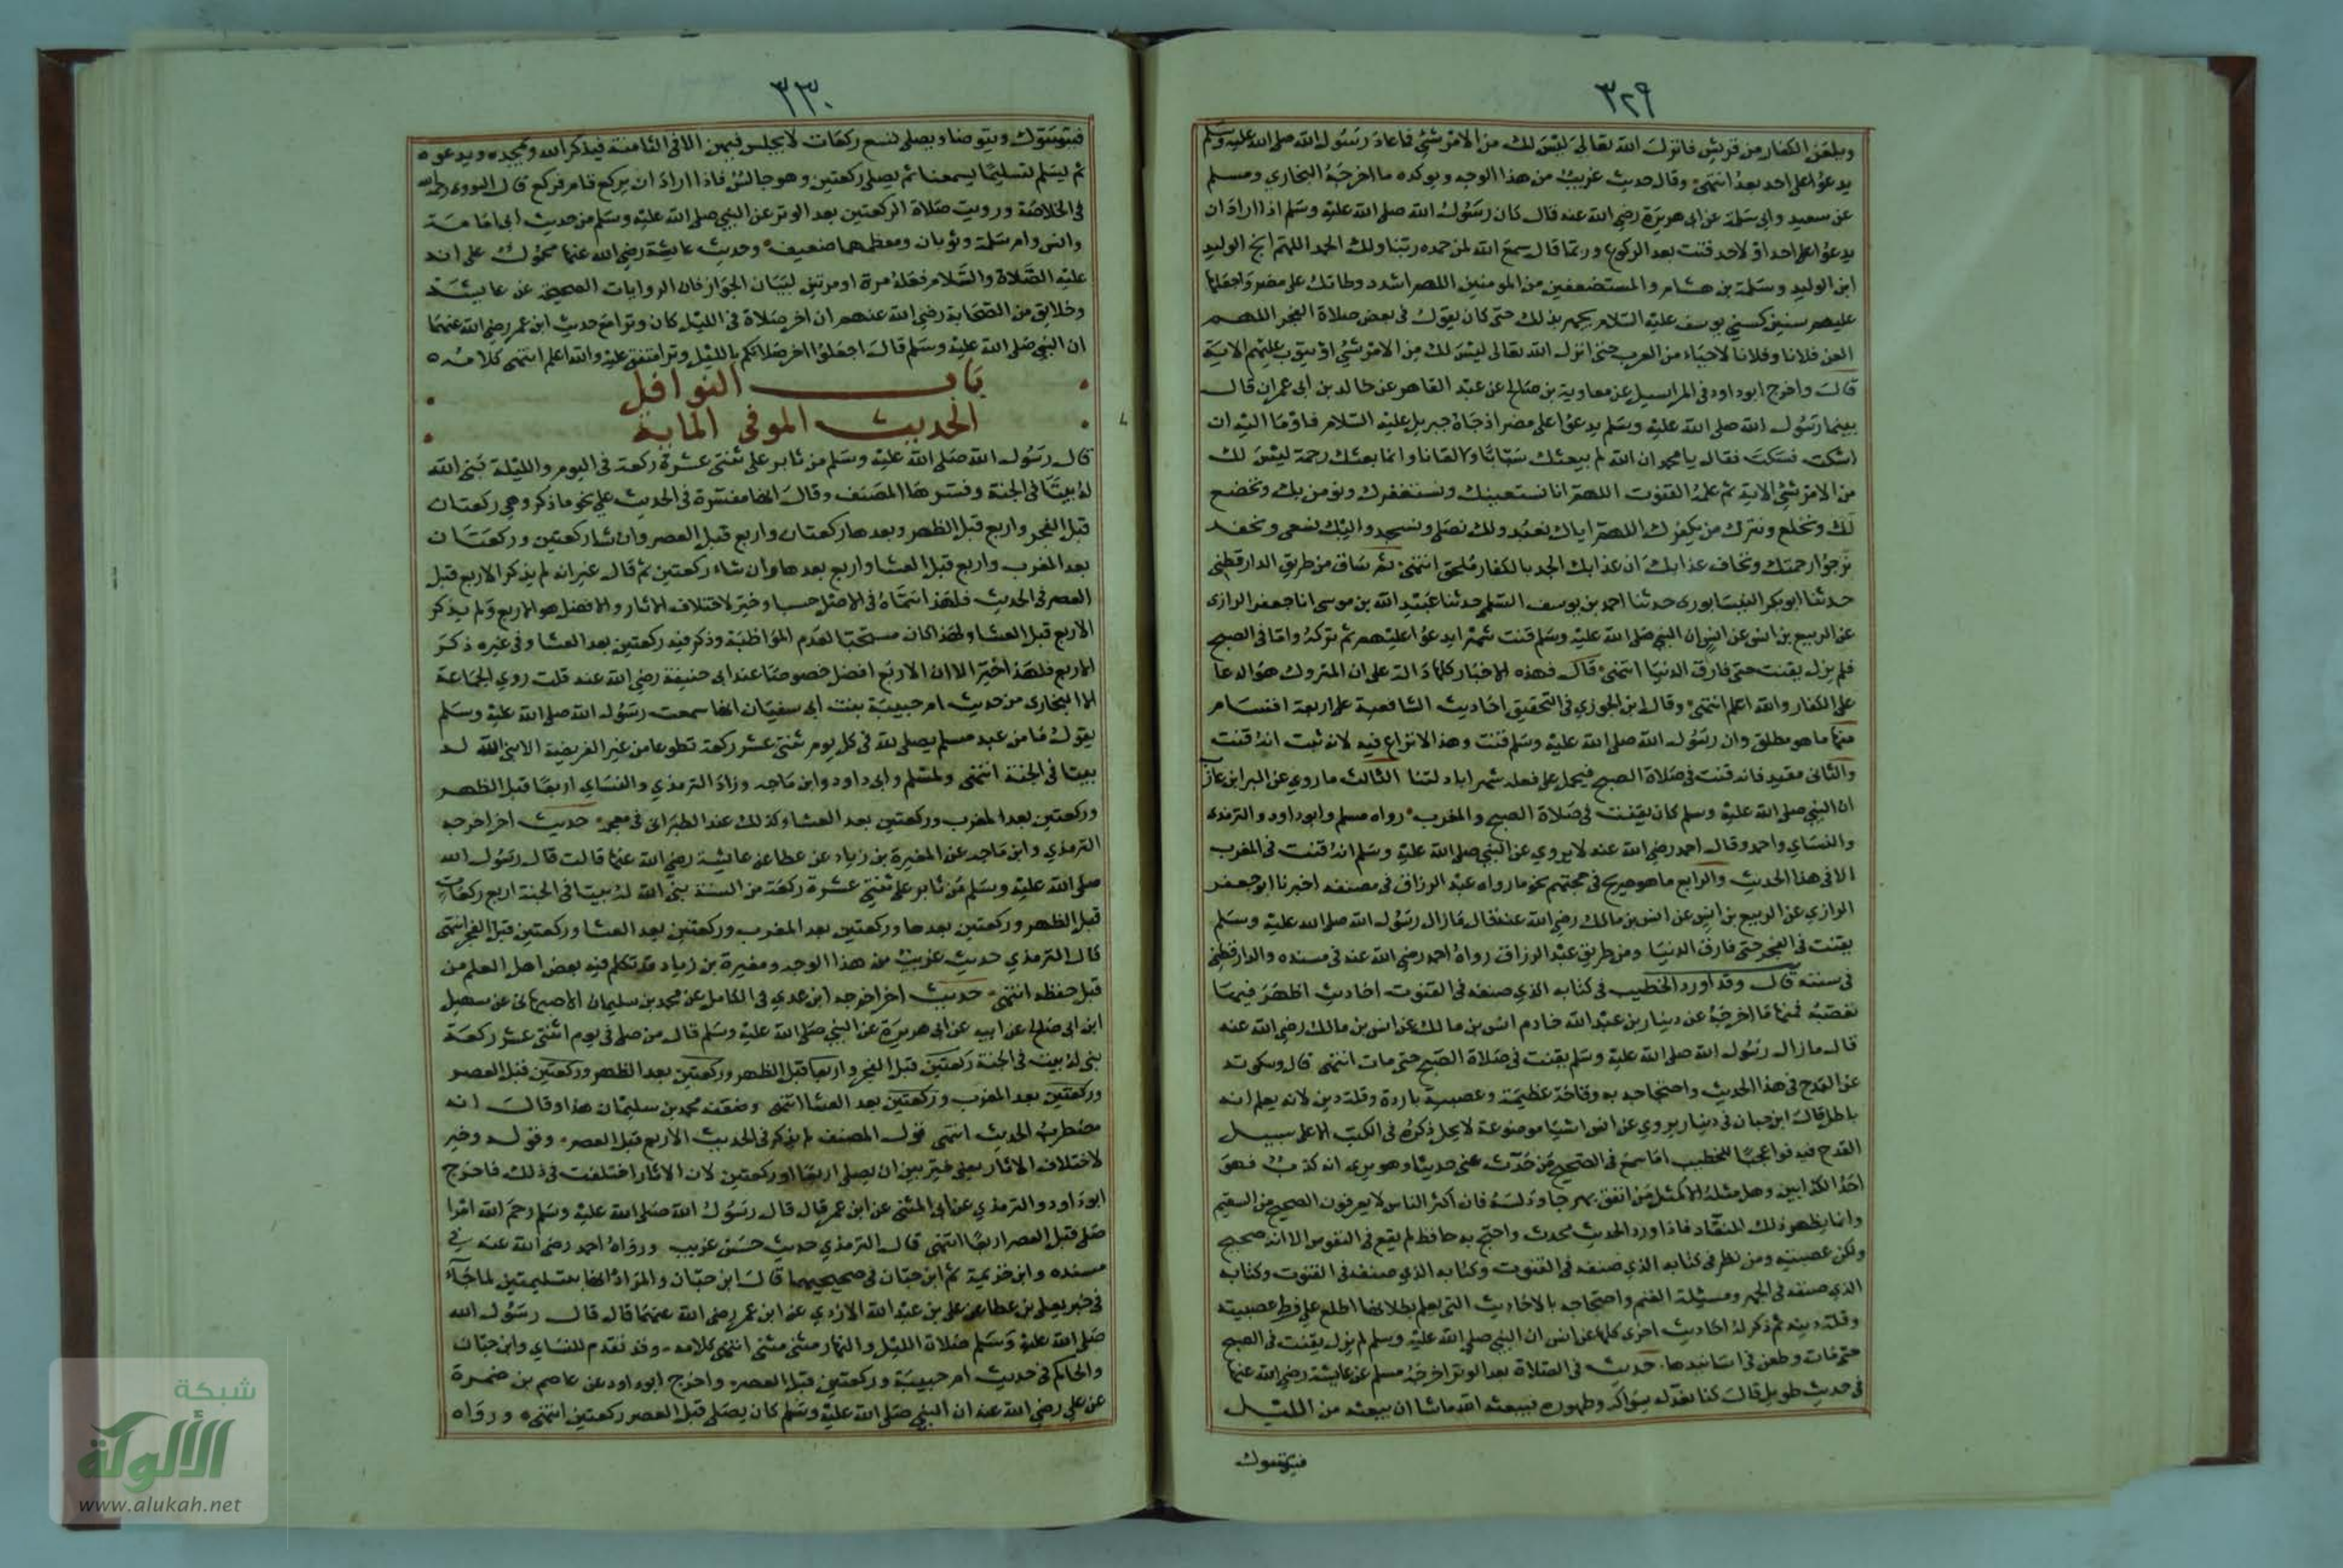 ٣٢٩
ويلعن الكفار من قريش فانزل الله تعالى ليس لك من الامر شئ فما عاد رسول الله صلى الله عليه وسلم
يدعوا على احد بعد انتهى وقال حديث غريب من هذا الوجه ويوكده ما اخرجه البخاري ومسلم
عن سعيد وابي سلمة عن ابي هريرة رضي الله عنه قال كان رسول الله صلى الله عليه وسلم اذا اراد ان
يدعوا على احد او لاحد قنت بعد الركوع وربما قال سمع الله لمن حمده ربنا ولك الحمد اللهم انج الوليد
ابن الوليد وسلمة بن هشام والمستضعفين من المومنين اللهم اشدد وطاتك على مضر واجعلها
عليهم سنين كسني يوسف عليه السلام يجهر بذلك حتى كان يقول في بعض صلاة الفجر اللهم
العن فلانا وفلانا لاحياء من العرب حتى انزل الله تعالى ليس لك من الامر شئ او يتوب عليهم الاية
قال واخرج ابو داود في المراسيل عن معاوية بن صالح عن عبد القاهر عن خالد بن ابي عمران قال
بينما رسول الله صلى الله عليه وسلم يدعوا على مضر اذ جاه جبريل عليه السلام فاوما اليه ان
اسكت فسكت فقال يا محمد ان الله لم يبعثك سبابا ولا لعانا وانما بعثك رحمة ليس لك
من الامر شئ الاية ثم علمه القنوت اللهم انا نستعينك ونستغفرك ونومن بك ونخضع
لك ونخلع ونترك من يكفرك اللهم اياك نعبد ولك نصلى ونسجد واليك نسعى ونحفد
نرجوا رحمتك ونخاف عذابك ان عذابك الجد بالكفار ملحق انتهى ثم ساق من طريق الدارقطني
حدثنا ابو بكر النيسابورى حدثنا احمد بن يوسف السلمي حدثنا عبيد الله بن موسى انا جعفر الرازى
عن الربيع بن انس عن انس ان النبي صلى الله عليه وسلم قنت شهرا يدعوا عليهم ثم تركه واما في الصبح
فلم يزل يقنت حتى فارق الدنيا انتهى قال فهذه الاخبار كلها دالة على ان المتروك هو الدعا
على الكفار والله اعلم انتهى وقال ابن الجوزي في التحقيق احاديث الشافعية على اربعة اقسام
منها ما هو مطلق وان رسول الله صلى الله عليه وسلم قنت وهذا لا نزاع فيه لانه ثبت انه قنت
والثاني مقيد فانه قنت في صلاة الصبح فيحمل على فعله شهرا بادلتنا الثالث ما روي عن البرا بن عازب
ان النبي صلى الله عليه وسلم كان يقنت في صلاة الصبح والمغرب رواه مسلم وابو داود والترمذى
والنساي واحمد وقال احمد رضي الله عنه لا يروي عن النبي صلى الله عليه وسلم انه قنت في المغرب
الا في هذا الحديث والرابع ما هو صريح في حجتهم نحو ما رواه عبد الرزاق في مصنفه اخبرنا ابو جعفر
الرازي عن الربيع بن انس عن انس بن مالك رضي الله عنه قال ما زال رسول الله صلى الله عليه وسلم
يقنت في الفجر حتى فارق الدنيا ومن طريق عبد الرزاق رواه احمد رضي الله عنه في مسنده والدارقطني
في سننه قال وقد اورد الخطيب في كتابه الذي صنفه في القنوت احاديث اظهر فيها
تعصبه فمنها ما اخرجه عن دينار بن عبد الله خادم انس بن مالك عن انس بن مالك رضي الله عنه
قال ما زال رسول الله صلى الله عليه وسلم يقنت في صلاة الصبح حتى مات انتهى قال وسكوته
عن القدح في هذا الحديث واحتجاجه به وقاحة عظيمة وعصبية باردة وقلة دين لانه يعلم انه
باطل قال ابن حبان في دينار يروي عن انس اشيا موضوعة لا يحل ذكره في الكتب الا على سبيل
القدح فيه فواعجبا للخطيب اما سمع في الصحيح من حدث عني حديثا وهو يرى انه كذب فهو
احد الكذابين وهل مثله الا كمثل من انفق بهرجا ودلسه فان اكثر الناس لا يعرفون الصحيح من السقيم
وانما يظهر ذلك للنقاد فاذا اورد الحديث محدث واحتج به حافظ لم يقع في النفوس الا انه صحيح
ولكن عصبيته ومن نظر في كتابه الذي صنفه في القنوت وكتابه الذي صنفه في القنوت وكتابه
الذي صنفه في الجهر ومسئلة الغيم واحتجاجه بالاحاديث التي يعلم بطلانها اطلع على فرط عصبيته
وقلة دينه ثم ذكر له احاديث اخرى كلها عن انس ان النبي صلى الله عليه وسلم لم يزل يقنت في الصبح
حتى مات وطعن في اسانيدها حديث في الصلاة بعد الوتر اخرجه مسلم عن عايشة رضي الله عنها
في حديث طويل قالت كنا نعد له سواكه وطهوره فيبعثه الله ما شا ان يبعثه من الليل
فيتسوك
٣٣٠
فيتسوك ويتوضا ويصلى تسع ركعات لا يجلس فيهن الا في الثامنة فيذكر الله ويمجده ويدعوه
ثم يسلم تسليما يسمعنا ثم يصلى ركعتين وهو جالس فاذا اراد ان يركع قام فركع قال النووى رحمه الله
في الخلاصة ورويت صلاة الركعتين بعد الوتر عن النبي صلى الله عليه وسلم من حديث ابي امامة
وانس وام سلمة وثوبان ومعظمها ضعيف وحديث عايشة رضي الله عنها محمول على انه
عليه الصلاة والسلام فعله مرة او مرتين لبيان الجواز فان الروايات الصحيحة عن عايشة
وخلايق من الصحابة رضي الله عنهم ان اخر صلاة في الليل كان وترا مع حديث ابن عمر رضي الله عنهما
ان النبي صلى الله عليه وسلم قال اجعلوا اخر صلاتكم بالليل وترا متفق عليه والله اعلم انتهى كلامه
باب النوافل
الحديث الموفي الماية
قال رسول الله صلى الله عليه وسلم من ثابر على ثنتى عشرة ركعة في اليوم والليلة بنى الله
له بيتا في الجنة وفسرها المصنف وقال انها مفسرة في الحديث على نحو ما ذكر وهي ركعتان
قبل الفجر واربع قبل الظهر وبعدها ركعتان واربع قبل العصر وان شا ركعتين وركعتان
بعد المغرب واربع قبل العشا واربع بعدها وان شاء ركعتين ثم قال غير انه لم يذكر الاربع قبل
العصر في الحديث فلهذا سماه في الاصل حسنا وخير لاختلاف الاثار والافضل هو الاربع ولم يذكر
الاربع قبل العشا ولهذا كان مستحبا لعدم المواظبة وذكر فيه ركعتين بعد العشا وفي غيره ذكر
الاربع فلهذا خير الا ان الاربع افضل خصوصا عند ابي حنيفة رضي الله عنه قلت روي الجماعة
الا البخارى من حديث ام حبيبة بنت ابي سفيان انها سمعت رسول الله صلى الله عليه وسلم
يقول ما من عبد مسلم يصلى لله في كل يوم ثنتى عشر ركعة تطوعا من غير الفريضة الا بنى الله له
بيتا في الجنة انتهى ولمسلم وابي داود وابن ماجه وزاد الترمذي والنساي اربعا قبل الظهر
وركعتين بعد المغرب وركعتين بعد العشا وكذلك عند الطبراني في معجمه حديث اخر اخرجه
الترمذي وابن ماجه عن المغيرة بن زياد عن عطا عن عايشة رضي الله عنها قالت قال رسول الله
صلى الله عليه وسلم من ثابر على ثنتى عشرة ركعة من السنة بنى الله له بيتا في الجنة اربع ركعات
قبل الظهر وركعتين بعدها وركعتين بعد المغرب وركعتين بعد العشا وركعتين قبل الفجر انتهى
قال الترمذي حديث غريب من هذا الوجه ومغيرة بن زياد قد تكلم فيه بعض اهل العلم من
قبل حفظه انتهى حديث اخر اخرجه ابن عدي في الكامل عن محمد بن سليمان الاصبهاني عن سهيل
ابن ابي صالح عن ابيه عن ابي هريرة عن النبي صلى الله عليه وسلم قال من صلى في يوم اثنتى عشر ركعة
بنى له بيت في الجنة ركعتين قبل الفجر واربعا قبل الظهر وركعتين بعد الظهر وركعتين قبل العصر
وركعتين بعد المغرب وركعتين بعد العشا انتهى وضعفه محمد بن سليمان هذا وقال انه
مضطرب الحديث انتهى قول المصنف لم يذكر في الحديث الاربع قبل العصر وقوله وخير
لاختلاف الاثار يعني خير بين ان يصلى اربعا او ركعتين لان الاثار اختلفت في ذلك فاخرج
ابو داود والترمذي عن ابي المثنى عن ابن عمر قال قال رسول الله صلى الله عليه وسلم رحم الله امرا
صلى قبل العصر اربعا انتهى قال الترمذي حديث حسن غريب ورواه احمد رضي الله عنه في
مسنده وابن خزيمة ثم ابن حبان في صحيحيهما قال ابن حبان والمراد انها بتسليمتين لما جآء
في خبر يعلى بن عطا عن على بن عبد الله الازدي عن ابن عمر رضي الله عنهما قال قال رسول الله
صلى الله عليه وسلم صلاة الليل والنهار مثنى مثنى انتهى كلامه وقد تقدم للنساي وابن حبان
والحاكم في حديث ام حبيبة وركعتين قبل العصر واخرج ابو داود عن عاصم بن ضمرة
عن على رضي الله عنه ان النبي صلى الله عليه وسلم كان يصلى قبل العصر ركعتين انتهى ورواه
شبكة
الألوكة
www.alukah.net